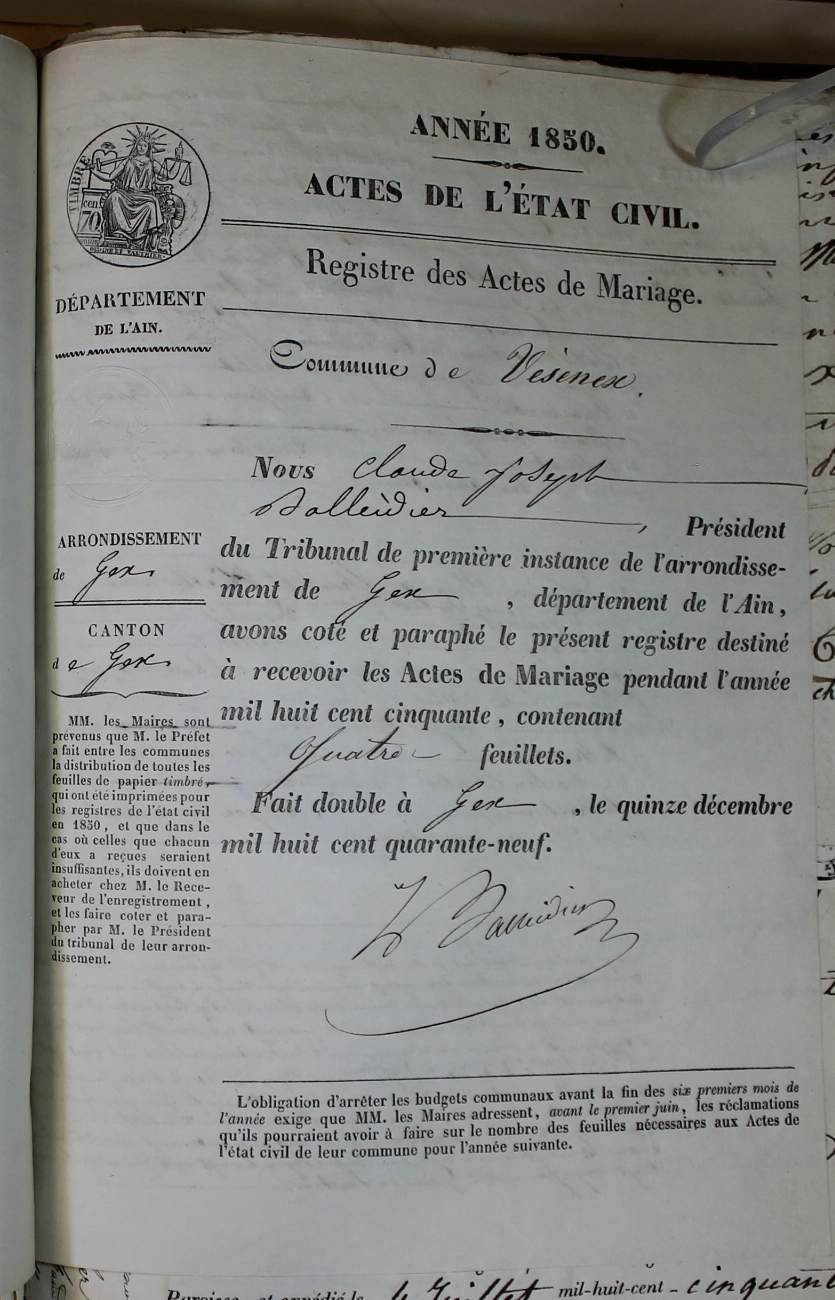 ANNÉE 1850.
ACTES DE L'ÉTAT CIVIL.
Registre des Actes de Mariage.
Commune de Vésenex.
TIMBRE
cen.
70
DÉPARTEMENT
DE L'AIN.
ARRONDISSEMENT
de Gex
CANTON
de Gex
MM. les Maires sont
prévenus que M. le Préfet
a fait entre les communes
la distribution de toutes les
feuilles de papier timbré,
qui ont été imprimées pour
les registres de l'état civil
en 1850, et que dans le
cas où celles que chacun
d'eux a reçues seraient
insuffisantes, ils doivent en
acheter chez M. le Rece-
veur de l'enregistrement,
et les faire coter et para-
pher par M. le Président
du tribunal de leur arron-
dissement.
Nous Claude Joseph
Balleidier, Président
du Tribunal de première instance de l'arrondisse-
ment de Gex, département de l'Ain,
avons coté et paraphé le présent registre destiné
à recevoir les Actes de Mariage pendant l'année
mil huit cent cinquante, contenant
Quatre feuillets.
Fait double à Gex, le quinze décembre
mil huit cent quarante-neuf.
Balleidier
L'obligation d'arrêter les budgets communaux avant la fin des six premiers mois de
l'année exige que MM. les Maires adressent, avant le premier juin, les réclamations
qu'ils pourraient avoir à faire sur le nombre des feuilles nécessaires aux Actes de
l'état civil de leur commune pour l'année suivante.
le Juillet mil-huit-cent-cinquan